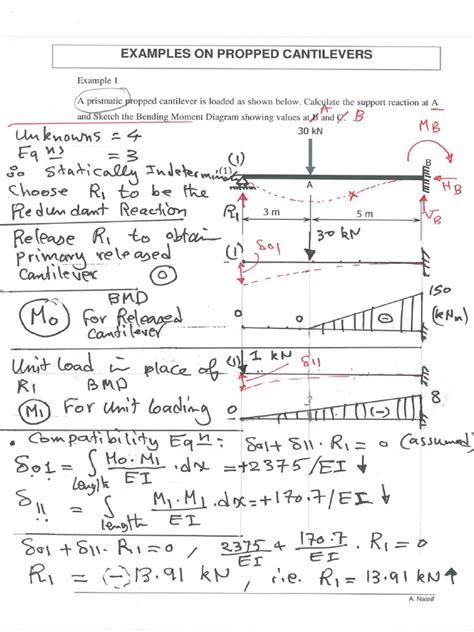 EXAMPLES ON PROPPED CANTILEVERS
Example 1
A prismatic propped cantilever is loaded as shown below. Calculate the support reaction at A
and Sketch the Bending Moment Diagram showing values at A and B
30 kN
Unknowns = 4
Eqns = 3
∴ Statically Indetermin
Choose R1 to be the
Redundant Reaction
(1)
(1)
A
B
MB
HB
VB
R1
3 m
5 m
30 kN
Release R1 to obtain
primary released
cantilever
O
(1)
δ01
BMD
Mo
For Released
cantilever
O
O
150
(-)
(kNm)
Unit load in place of
R1 BMD
(1)
1 kN
δ11
M1
For unit loading
O
3
(-)
8
• Compatibility Eqn: δ01 + δ11 . R1 = 0 (assumed)
δ01 = ∫Length Mo.M1/EI .dx = +2375/EI ↓
δ11 = ∫length M1.M1/EI .dx = +170.7/EI ↓
δ01 + δ11. R1 = 0 , 2375/EI + 170.7/EI . R1 = 0
R1 = (-)13.91 kN , i.e. R1 = 13.91 kN ↑
A. Nassif